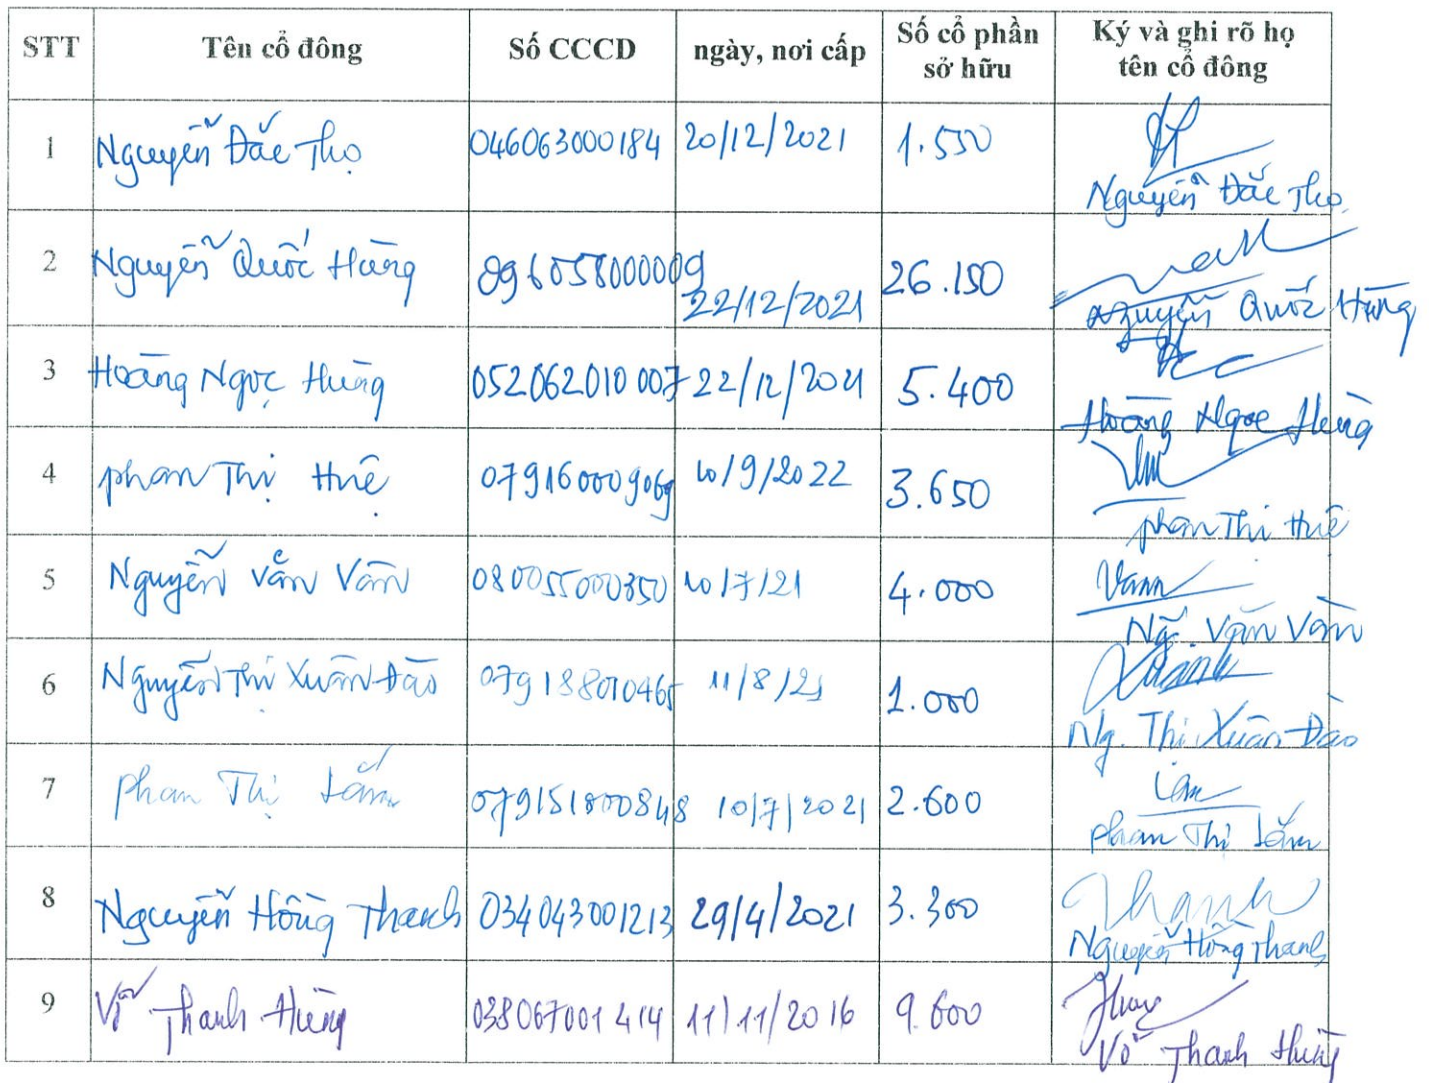 STT Tên cổ đông Số CCCD ngày, nơi cấp Số cổ phần sở hữu Ký và ghi rõ họ tên cổ đông
1 Nguyễn Đắc Thọ 046063000184 20/12/2021 1.550
Nguyễn Đắc Thọ
2 Nguyễn Quốc Hùng 096058000009 22/12/2021 26.150
Nguyễn Quốc Hùng
3 Hoàng Ngọc Hùng 052062010007 22/12/2021 5.400
Hoàng Ngọc Hùng
4 Phan Thị Huệ 079160009069 10/9/2022 3.650
Phan Thị Huệ
5 Nguyễn Văn Vân 080055000350 10/7/21 4.000
Vann
Ng Văn Vân
6 Nguyễn Thị Xuân Đào 079188010465 11/8/21 1.000
Ng. Thị Xuân Đào
7 Phan Thị Lắm 079151800848 10/7/2021 2.600
Phan Thị Lắm
8 Nguyễn Hồng Thanh 034043001213 29/4/2021 3.300
Thanh
Nguyễn Hồng Thanh
9 Võ Thanh Hùng 038067001414 11/11/2016 9.600
Võ Thanh Hùng